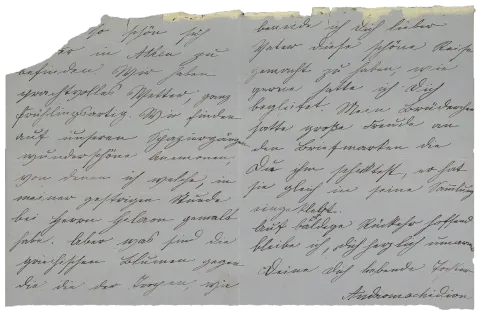 so schön sich
in Athen zu
befinden. Wir haben
prachtvolles Wetter, ganz
frühlingsartig. Wir finden
auf unseren Spaziergängen
wunderschöne Anemonen,
von denen ich welche in
meiner gestrigen Stunde
bei Herrn Gelam gemalt
habe. Aber was sind die
griechischen Blumen gegen
die die der Tropen, wie
beneide ich Dich lieber
Vater diese schöne Reise
gemacht zu haben, wie
gerne hätte ich Dich
begleitet. Mein Brüderchen
hatte große Freude an
den Briefmarken die
Du ihm schicktest, er hat
sie gleich in seine Sammlung
eingeklebt.
Auf baldige Rückkehr hoffend
bleibe ich, Dich herzlich umarmend
Deine Dich liebende Tochter
Andromachidion